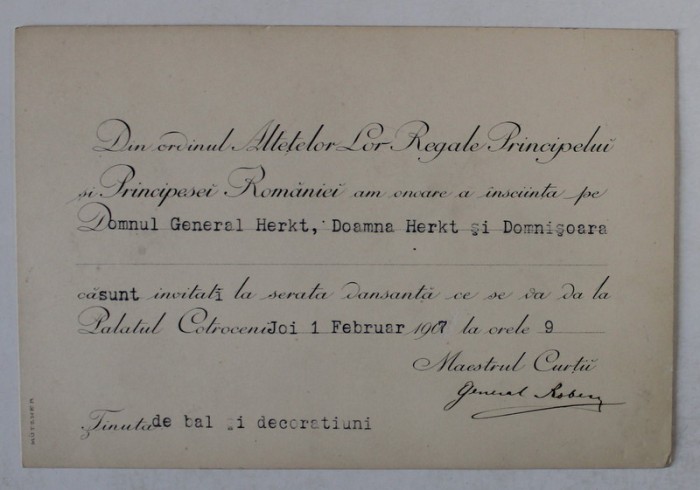 Din ordinul Altețelor Lor Regale Principeluĭ
și Principeseĭ Românieĭ am onoare a însciința pe
Domnul General Herkt, Doamna Herkt și Domnișoara
căsunt invitatĭ la serata dansantă ce se va da la
Palatul Cotroceni Joi 1 Februar 1907 la orele 9
Maestrul Curțiĭ
General
Ținuta de bal și decoratiuni